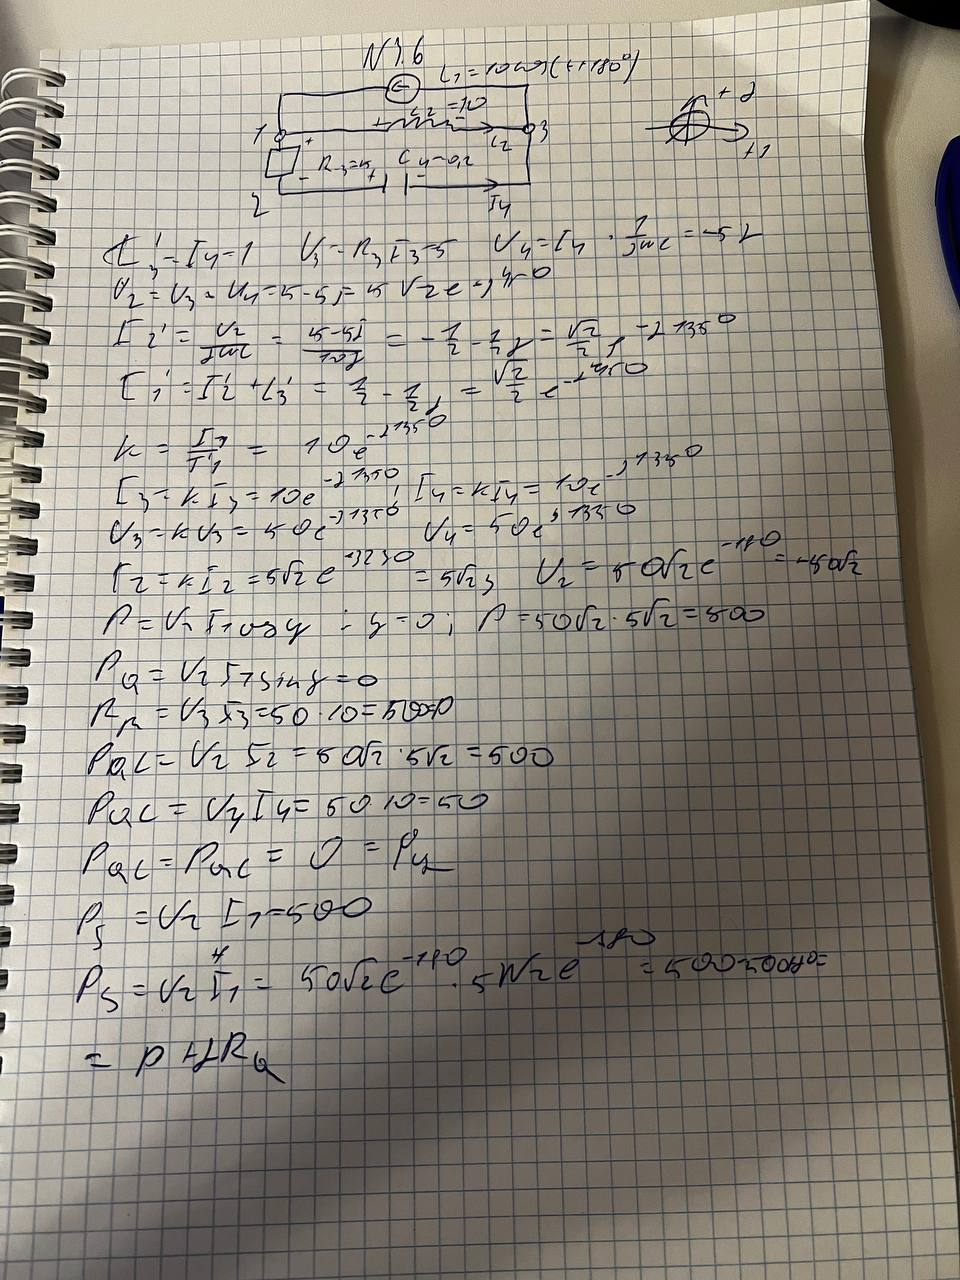 N3.6
i₁=10cos(t+180°)
L₂=10
1
3
i₂
R₃=5
C₄=0,2
2
I₄
+j
+1
I'₃=I₄=1 U₃=R₃I₃=5 U₄=I₄·1/jωC=-5j
U₂=U₃+U₄=5-5j=5√2e^-j45°
I₂'=U₂/jωL=5-5j/10j=-1/2-1/2j=√2/2 e^-j135°
I₁'=I₂'+I₃'=1/2-1/2j=√2/2 e^-j45°
K=I₁/I'₁=10e^-j135°
I₃=kI₃=10e^-j135°; I₄=kI₄=10e^-j135°
U₃=kU₃=50e^-j135° U₄=50e^j135°
I₂=kI₂=5√2e^-j270=5√2j U₂=50√2e^-180=-50√2
P=U₂I₁cosφ; φ=0; P=50√2·5√2=500
P_Q=U₂I₁sinφ=0
P_R=U₃I₃=50·10=500=P
P_QL=U₂I₂=50√2·5√2=500
P_QC=U₄I₄=50·10=50
P_QL=P_QC=0=
P_S=U₂I₁=500
P_S=U₂I₁*=50√2e^-180·5√2e^-180=500=500+j0=
=P+jP_Q